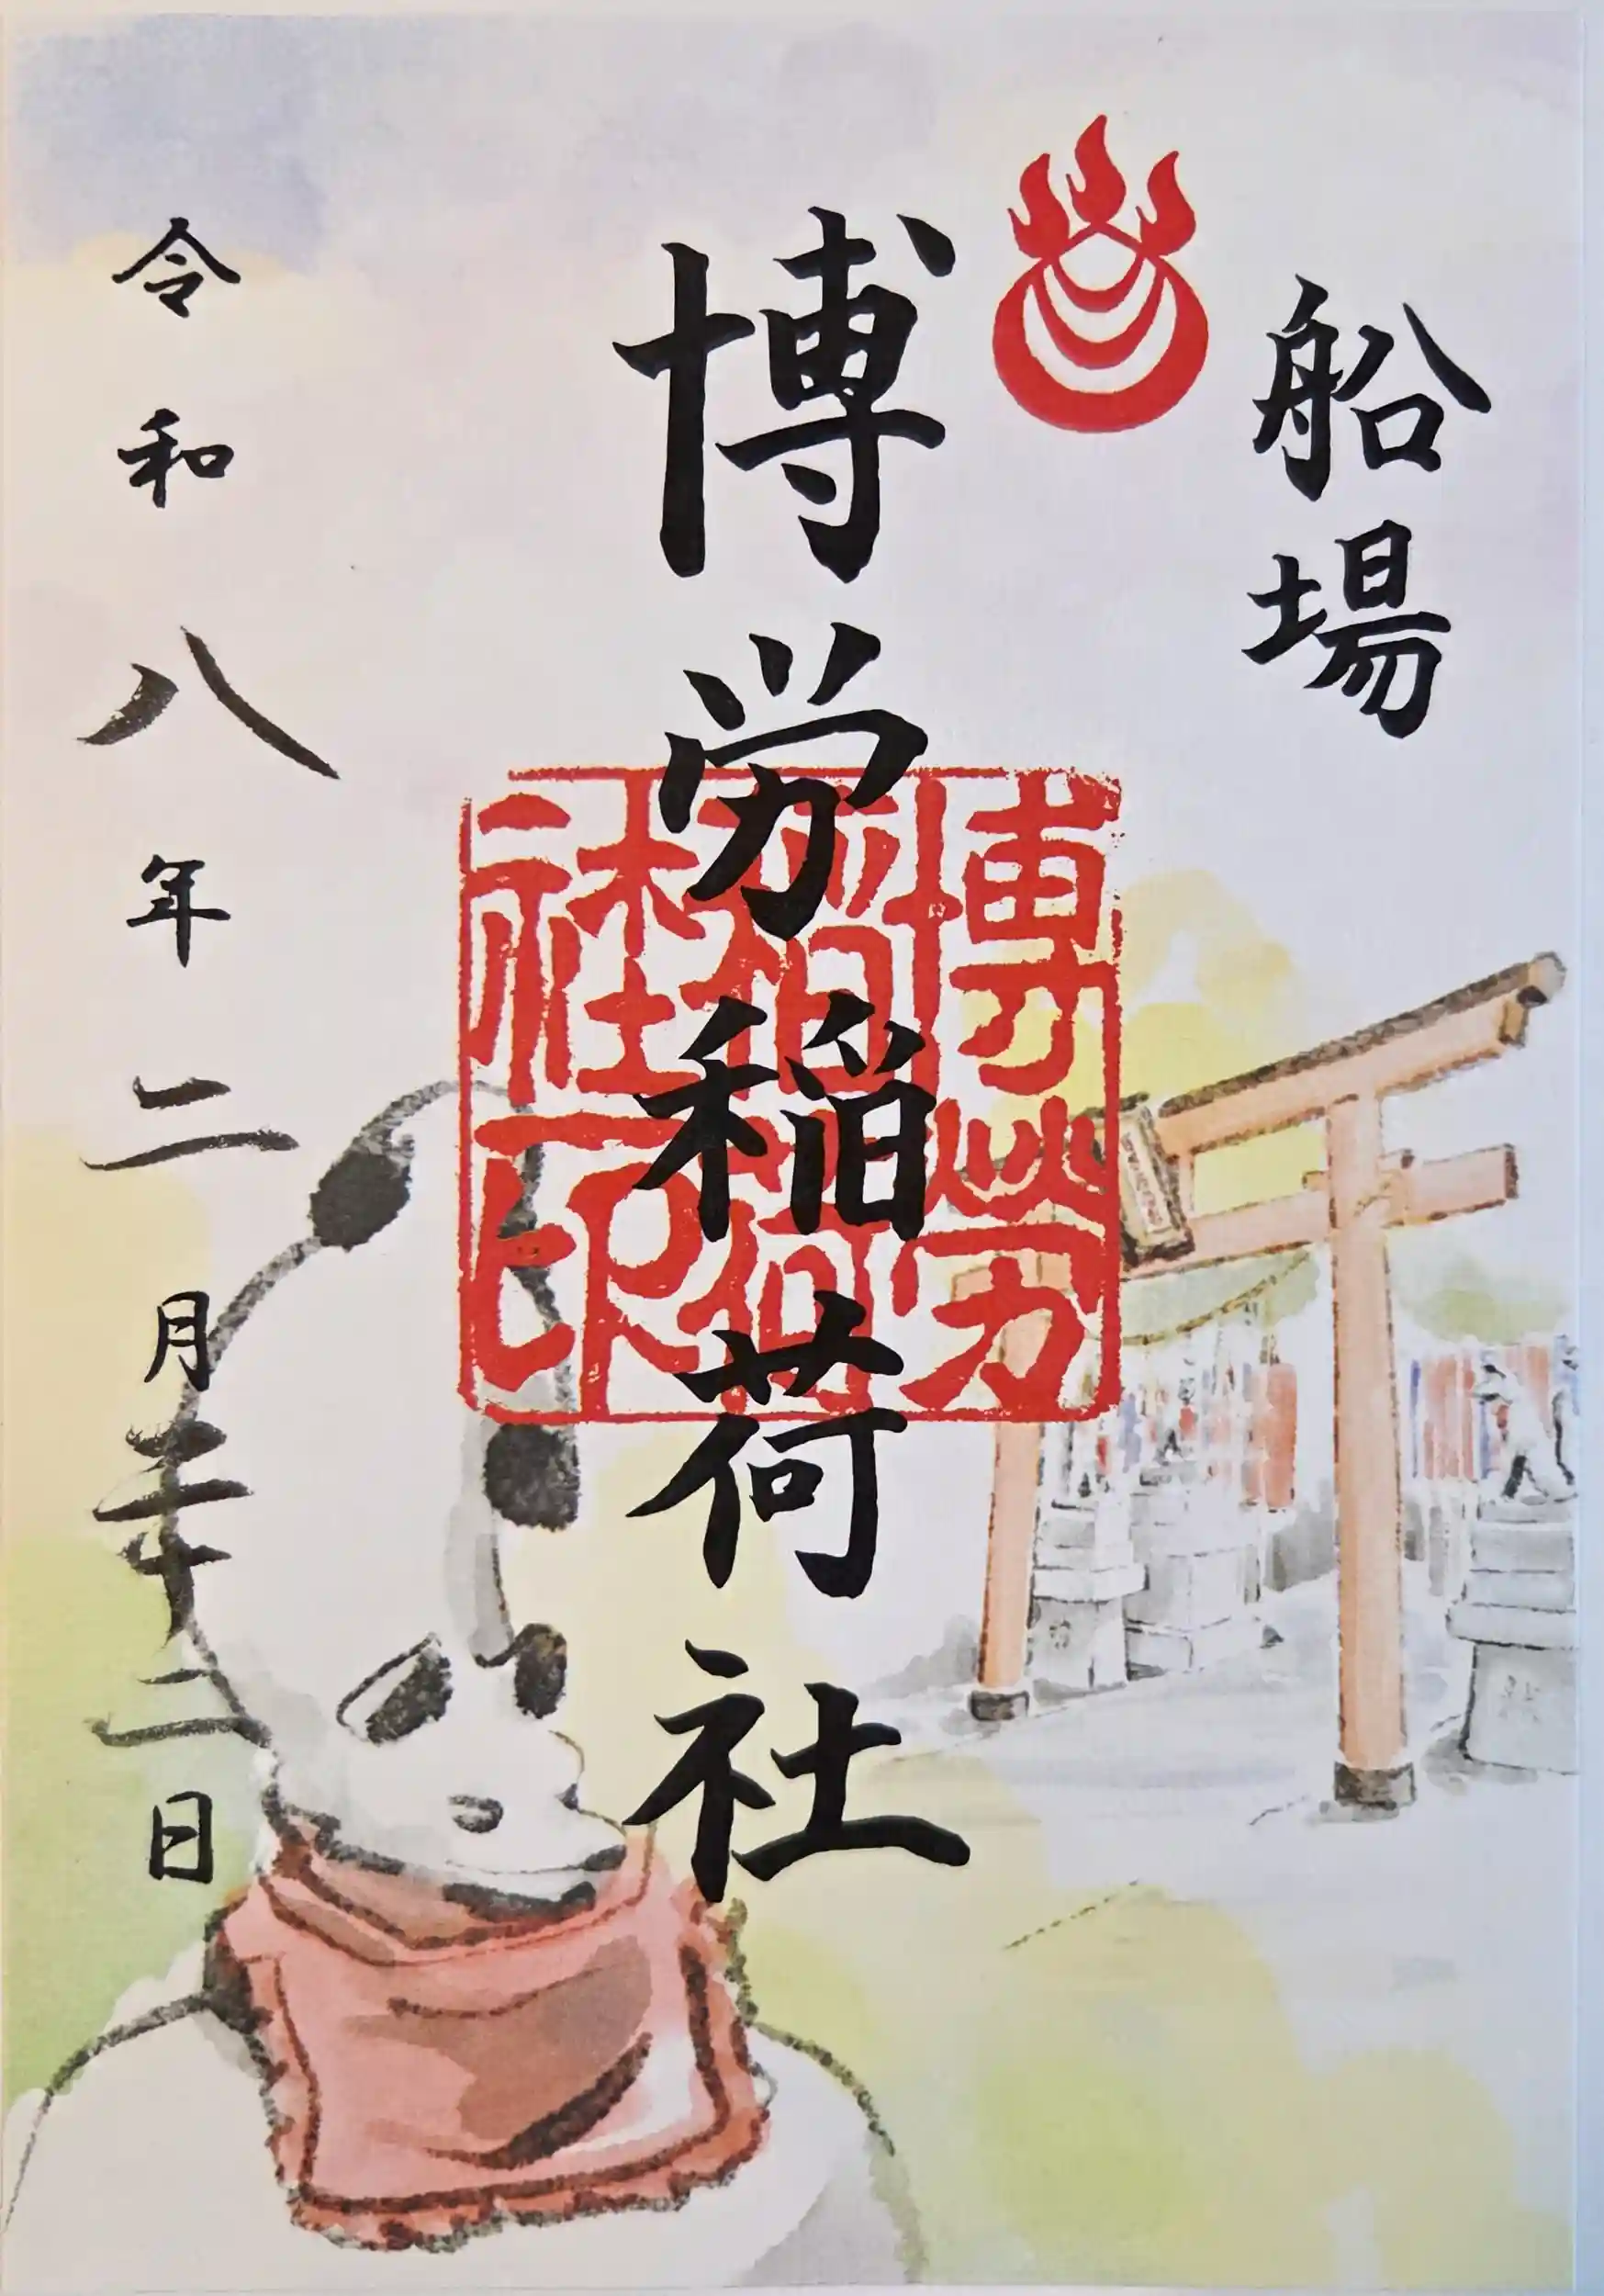 船場
博労稲荷社
令和八年二月二十二日
博勞
社印